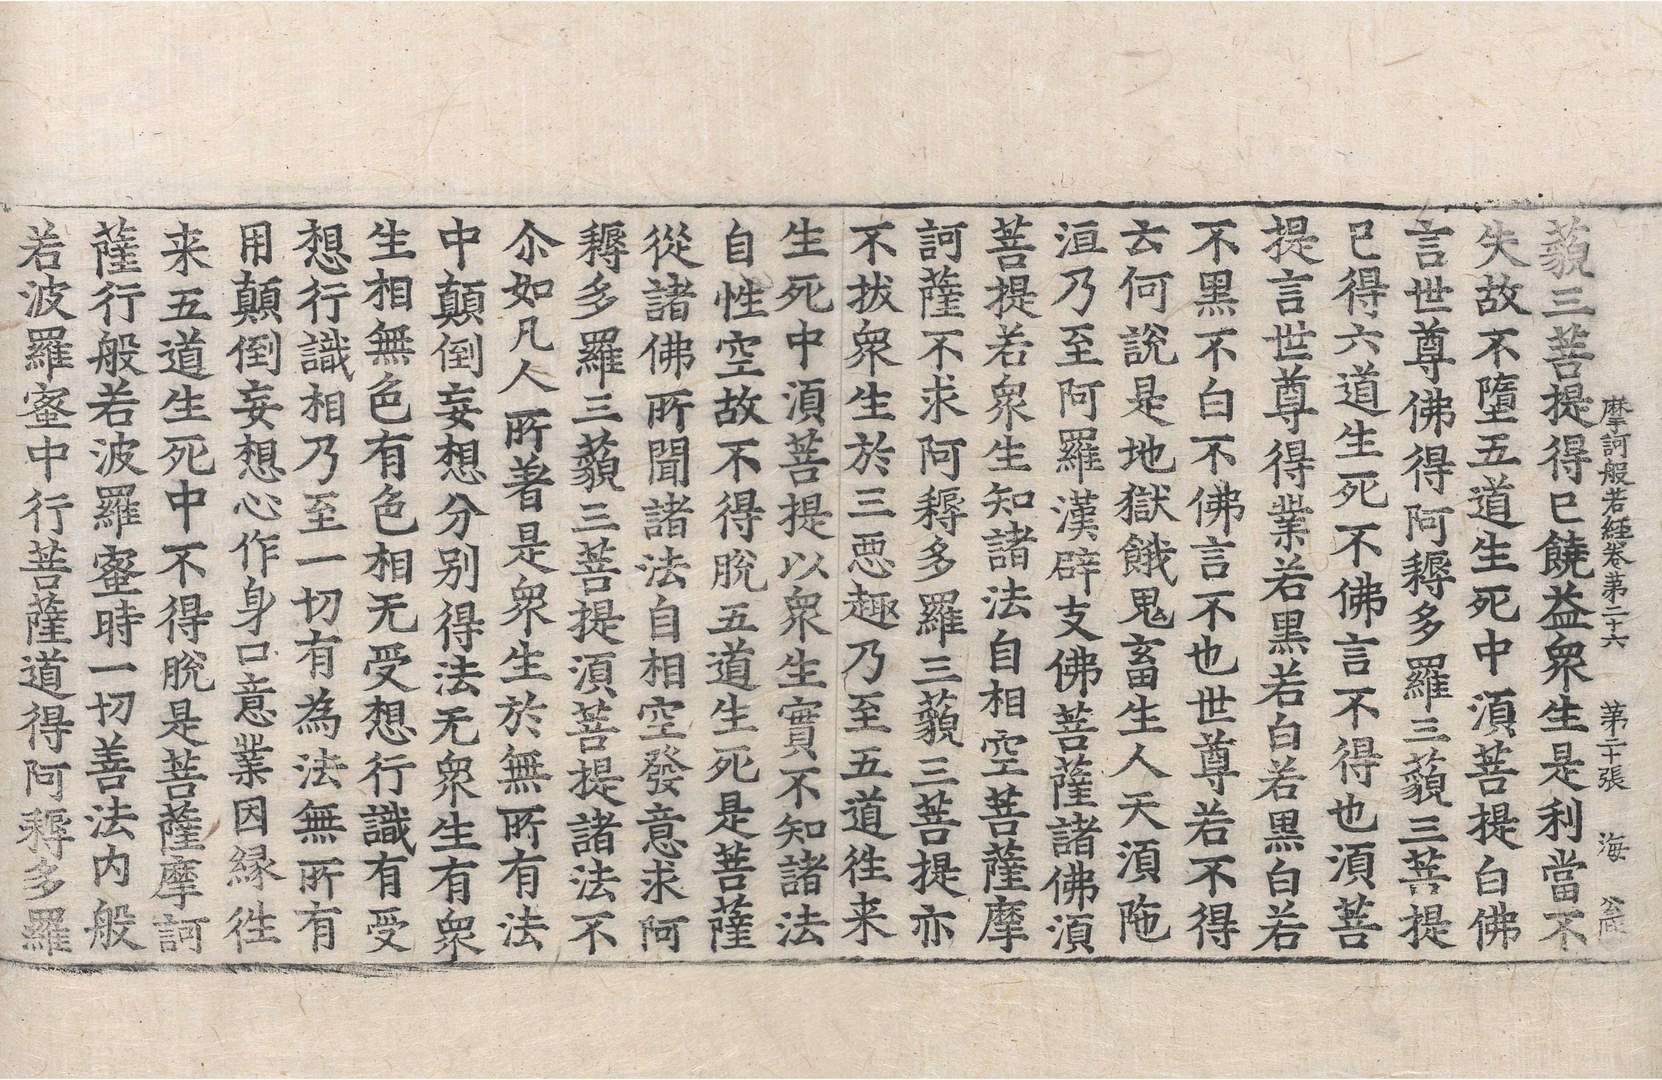 摩訶般若經卷第二十六　第二十張　海
藐三菩提得已饒益衆生是利當不
失故不墮五道生死中湏菩提白佛
言世尊佛得阿耨多羅三藐三菩提
已得六道生死不佛言不得也湏菩
提言世尊得業若黑若白若黑白若
不黑不白不佛言不也世尊若不得
云何說是地獄餓鬼畜生人天湏陁
洹乃至阿羅漢辟支佛菩薩諸佛湏
菩提若衆生知諸法自相空菩薩摩
訶薩不求阿耨多羅三藐三菩提亦
不拔衆生於三惡趣乃至五道徃来
生死中湏菩提以衆生實不知諸法
自性空故不得脫五道生死是菩薩
從諸佛所聞諸法自相空發意求阿
耨多羅三藐三菩提湏菩提諸法不
尒如凡人所著是衆生於無所有法
中顛倒妄想分別得法无衆生有衆
生相無色有色相无受想行識有受
想行識相乃至一切有為法無所有
用顛倒妄想心作身口意業因緣徃
来五道生死中不得脫是菩薩摩訶
薩行般若波羅蜜時一切善法內般
若波羅蜜中行菩薩道得阿耨多羅